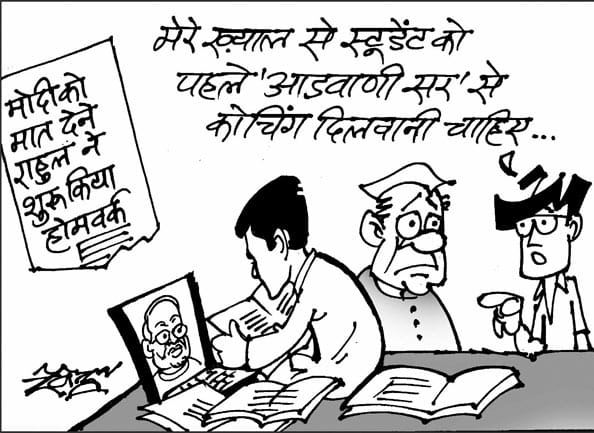 मेरे ख़्याल से स्टूडेंट को
पहले 'आडवाणी सर' से
कोचिंग दिलवानी चाहिए...
मोदी को
मात देने
राहुल ने
शुरू किया
होमवर्क